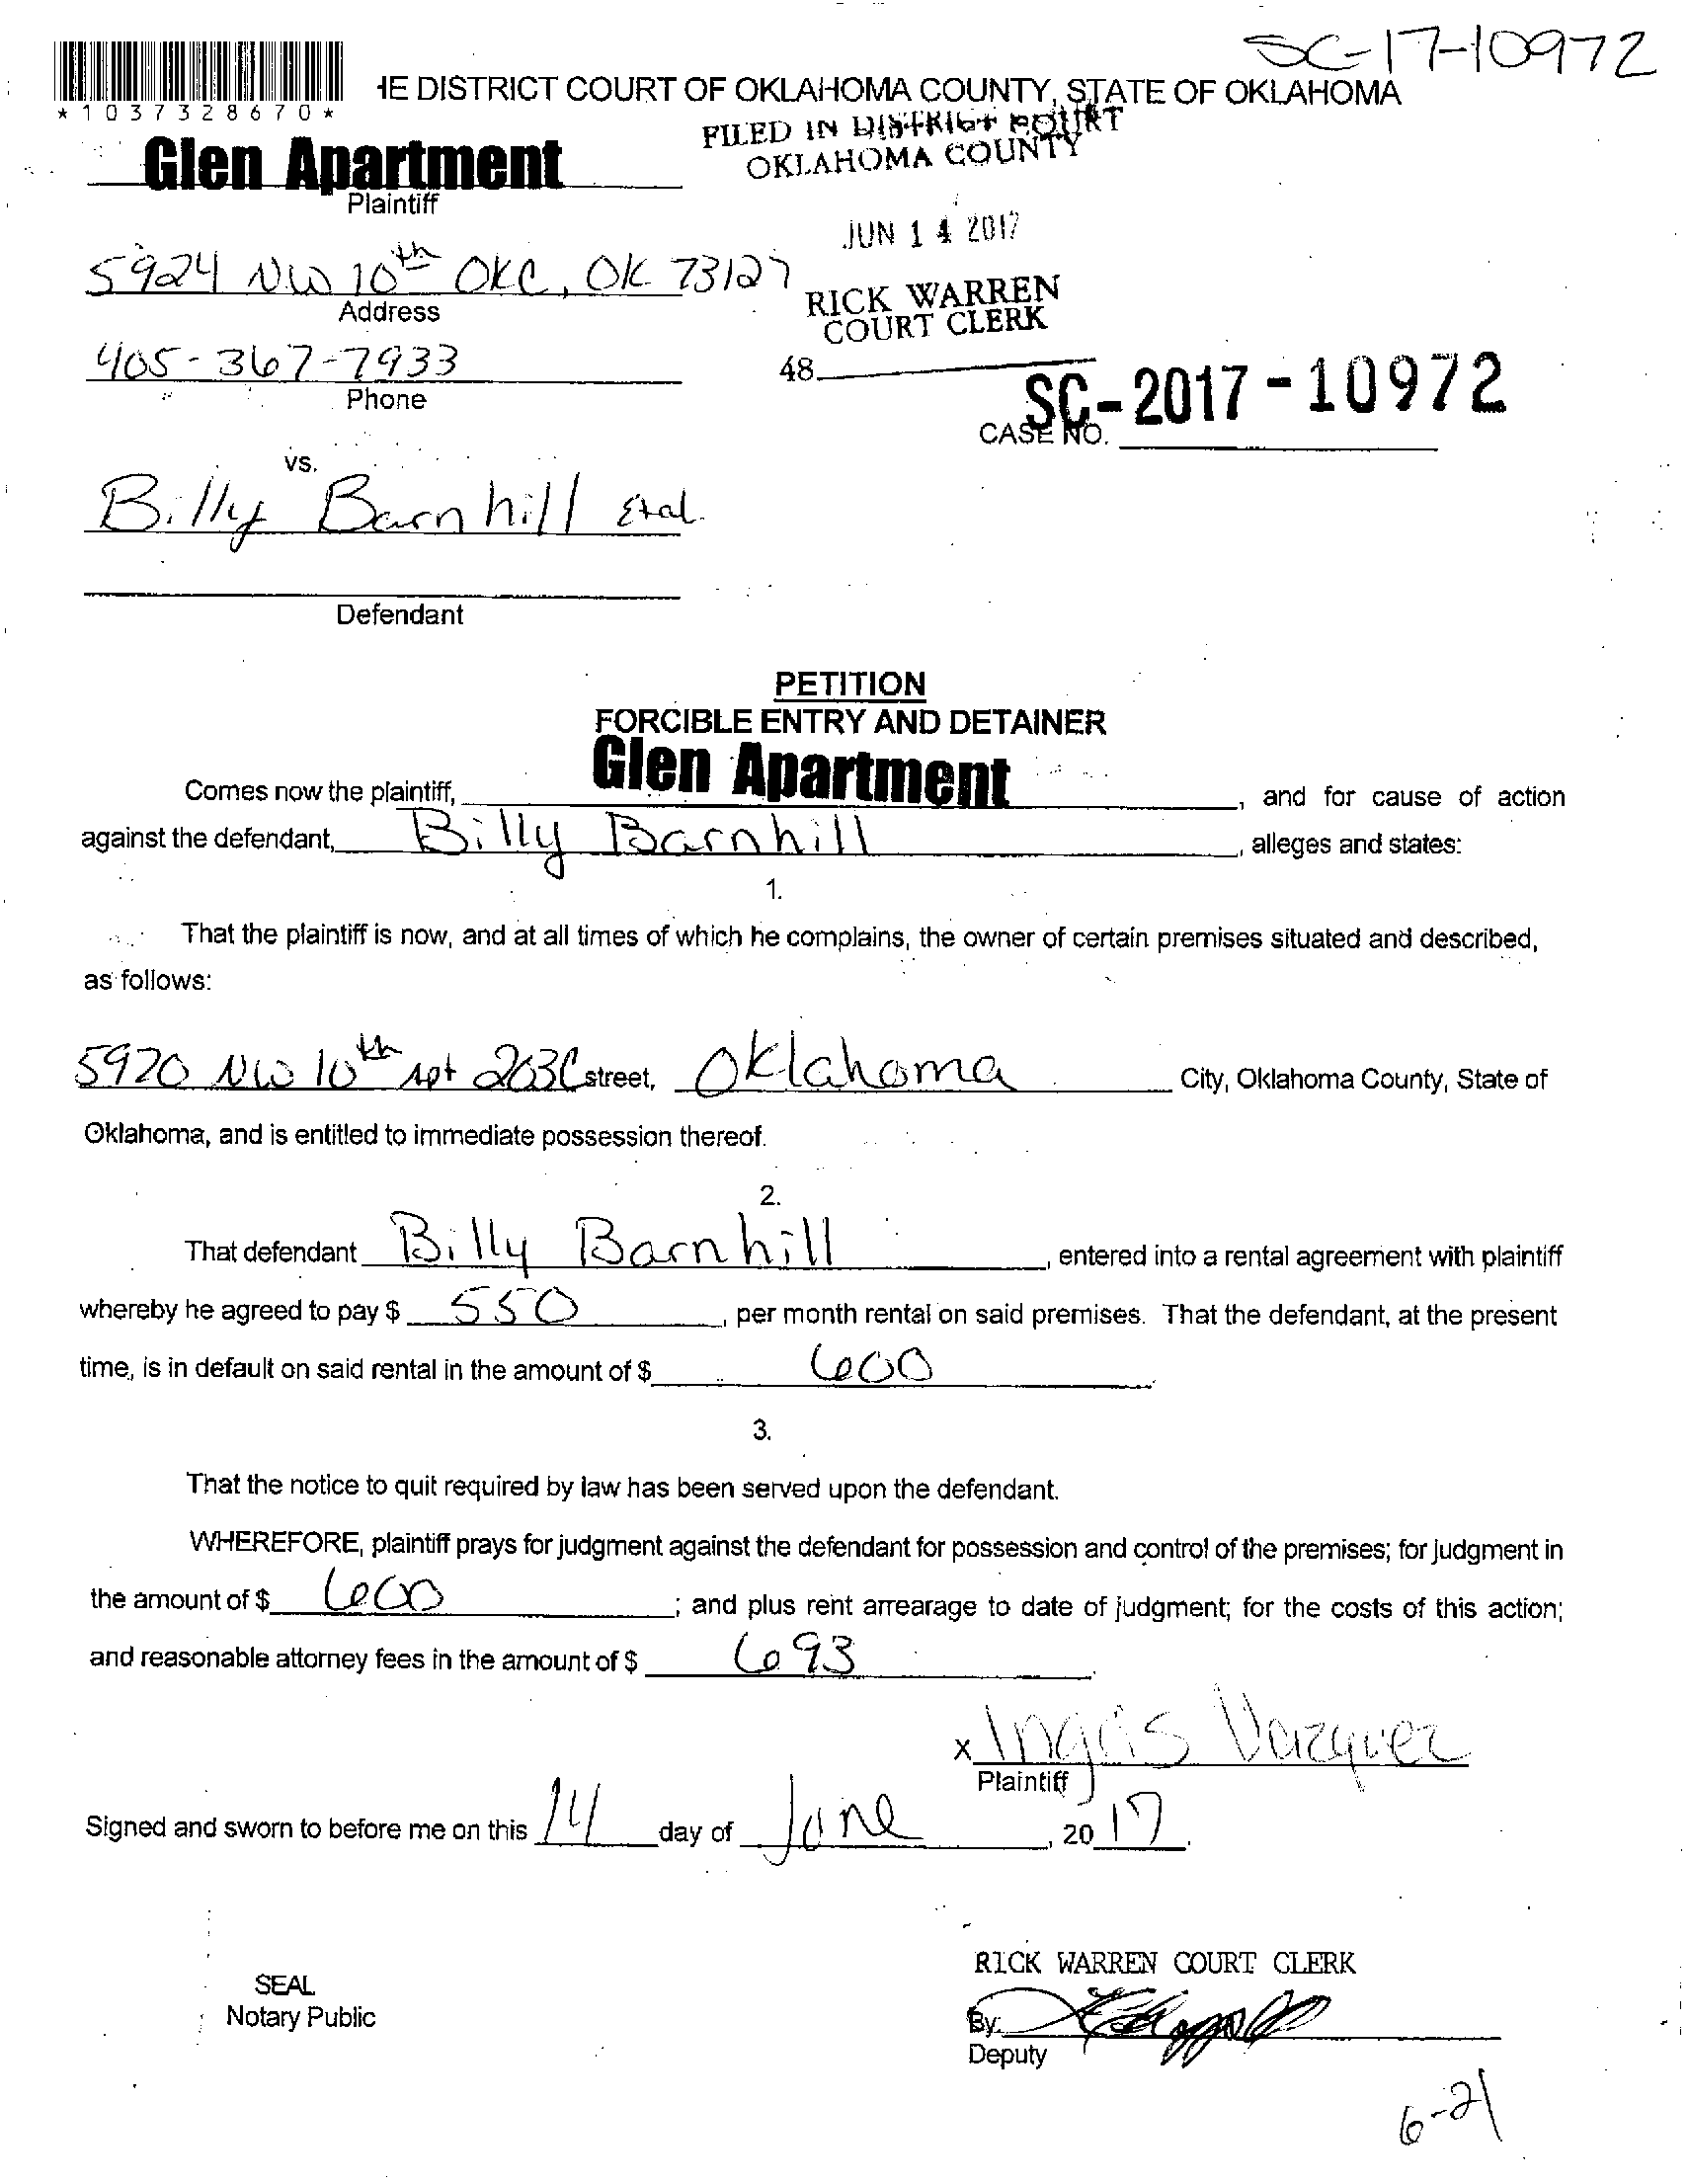 SC-17-10972
*1037328670*
IE DISTRICT COURT OF OKLAHOMA COUNTY, STATE OF OKLAHOMA
FILED IN DISTRICT COURT
OKLAHOMA COUNTY
Glen Apartment
Plaintiff
JUN 14 2017
5924 NW 10th OKC, OK 73127
Address
RICK WARREN
COURT CLERK
405-367-7933
Phone
48
SC-2017-10972
CASE NO.
vs.
Billy Barnhill Etal.
Defendant
PETITION
FORCIBLE ENTRY AND DETAINER
Comes now the plaintiff, Glen Apartment, and for cause of action
against the defendant, Billy Barnhill, alleges and states:
1.
That the plaintiff is now, and at all times of which he complains, the owner of certain premises situated and described,
as follows:
5920 NW 10th Apt 203C street, Oklahoma City, Oklahoma County, State of
Oklahoma, and is entitled to immediate possession thereof.
2.
That defendant Billy Barnhill, entered into a rental agreement with plaintiff
whereby he agreed to pay $ 550, per month rental on said premises. That the defendant, at the present
time, is in default on said rental in the amount of $ 600
3.
That the notice to quit required by law has been served upon the defendant.
WHEREFORE, plaintiff prays for judgment against the defendant for possession and control of the premises; for judgment in
the amount of $ 600; and plus rent arrearage to date of judgment; for the costs of this action;
and reasonable attorney fees in the amount of $ 693
x Ingris Vazquez
Plaintiff
Signed and sworn to before me on this 14 day of June, 2017.
RICK WARREN COURT CLERK
SEAL
Notary Public
By:
Deputy
6-21